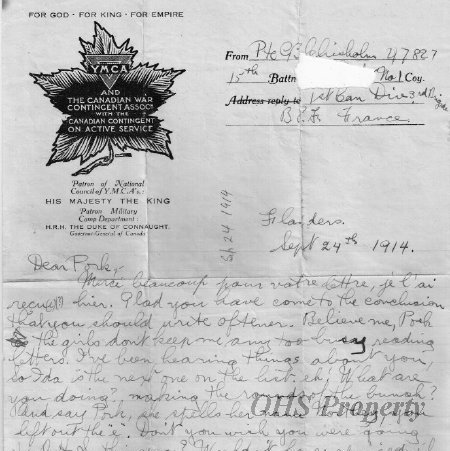 FOR GOD · FOR KING · FOR EMPIRE
YMCA
AND
THE CANADIAN WAR
CONTINGENT ASSOCN
WITH THE
CANADIAN CONTINGENT
ON ACTIVE SERVICE
Patron of National
Council of Y.M.C.A's.:
HIS MAJESTY THE KING
Patron Military
Camp Department:
H.R.H. THE DUKE OF CONNAUGHT,
Governor-General of Canada
From Pte Chisholm 47827
15th Battn No 1 Coy.
Address reply to 1st Can Div 3rd
B.E.F. France.
24 1914
Flanders.
Sept 24th 1914.
Dear Pork,
Merci beaucoup pour votre lettre, je l'ai
hier. Glad you have come to the conclusion
that you should write oftener. Believe me, Pork
the girls don't keep me any too busy reading
letters. I've been hearing things about you,
so Ida is the next one on the list, eh! What are
you doing? making the of the bunch?
And say Pork, she spells her
left out the 'e'. Don't you wish you were going
OHS Property